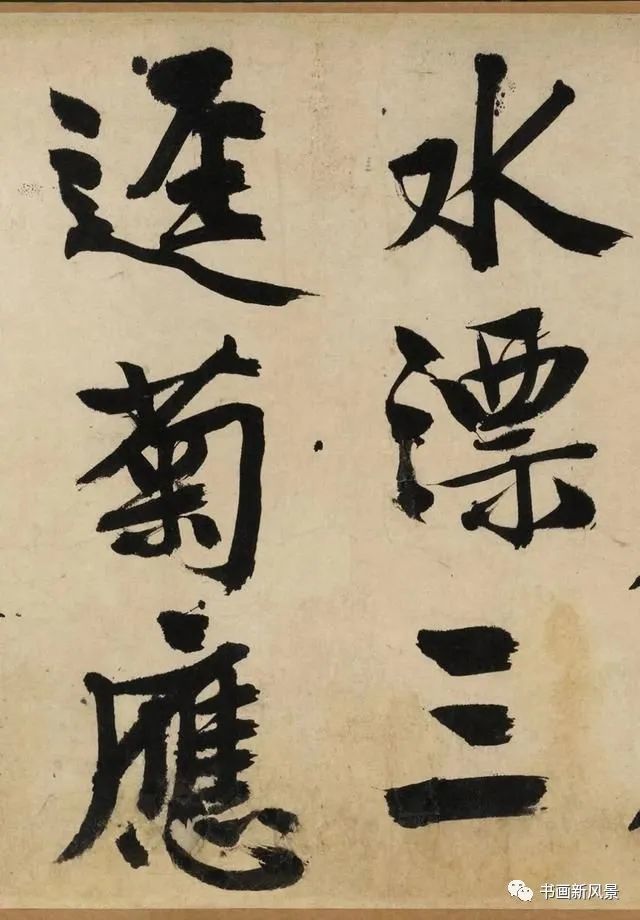 水漂三
逕菊應
书画新风景